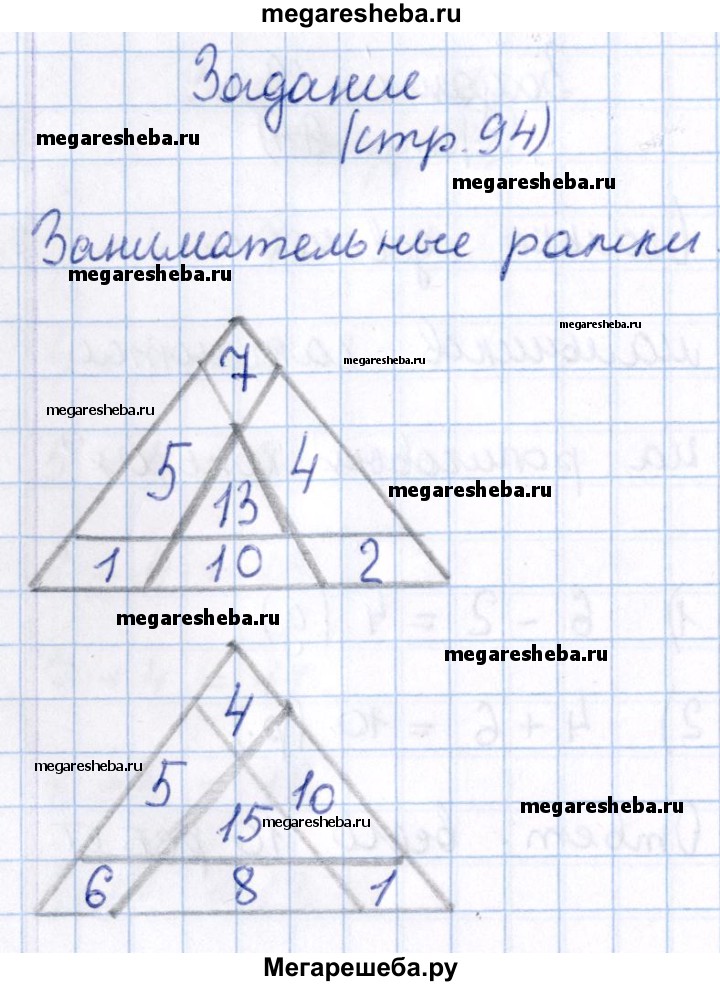 megaresheba.ru
Задание
megaresheba.ru
(стр. 94)
megaresheba.ru
Занимательные рамки.
megaresheba.ru
megaresheba.ru
7
megaresheba.ru
megaresheba.ru
5 4
megaresheba.ru
13
1 10 2
megaresheba.ru
megaresheba.ru
4
megaresheba.ru
5 10
megaresheba.ru
15
megaresheba.ru
6 8 1
Мегарешеба.ру